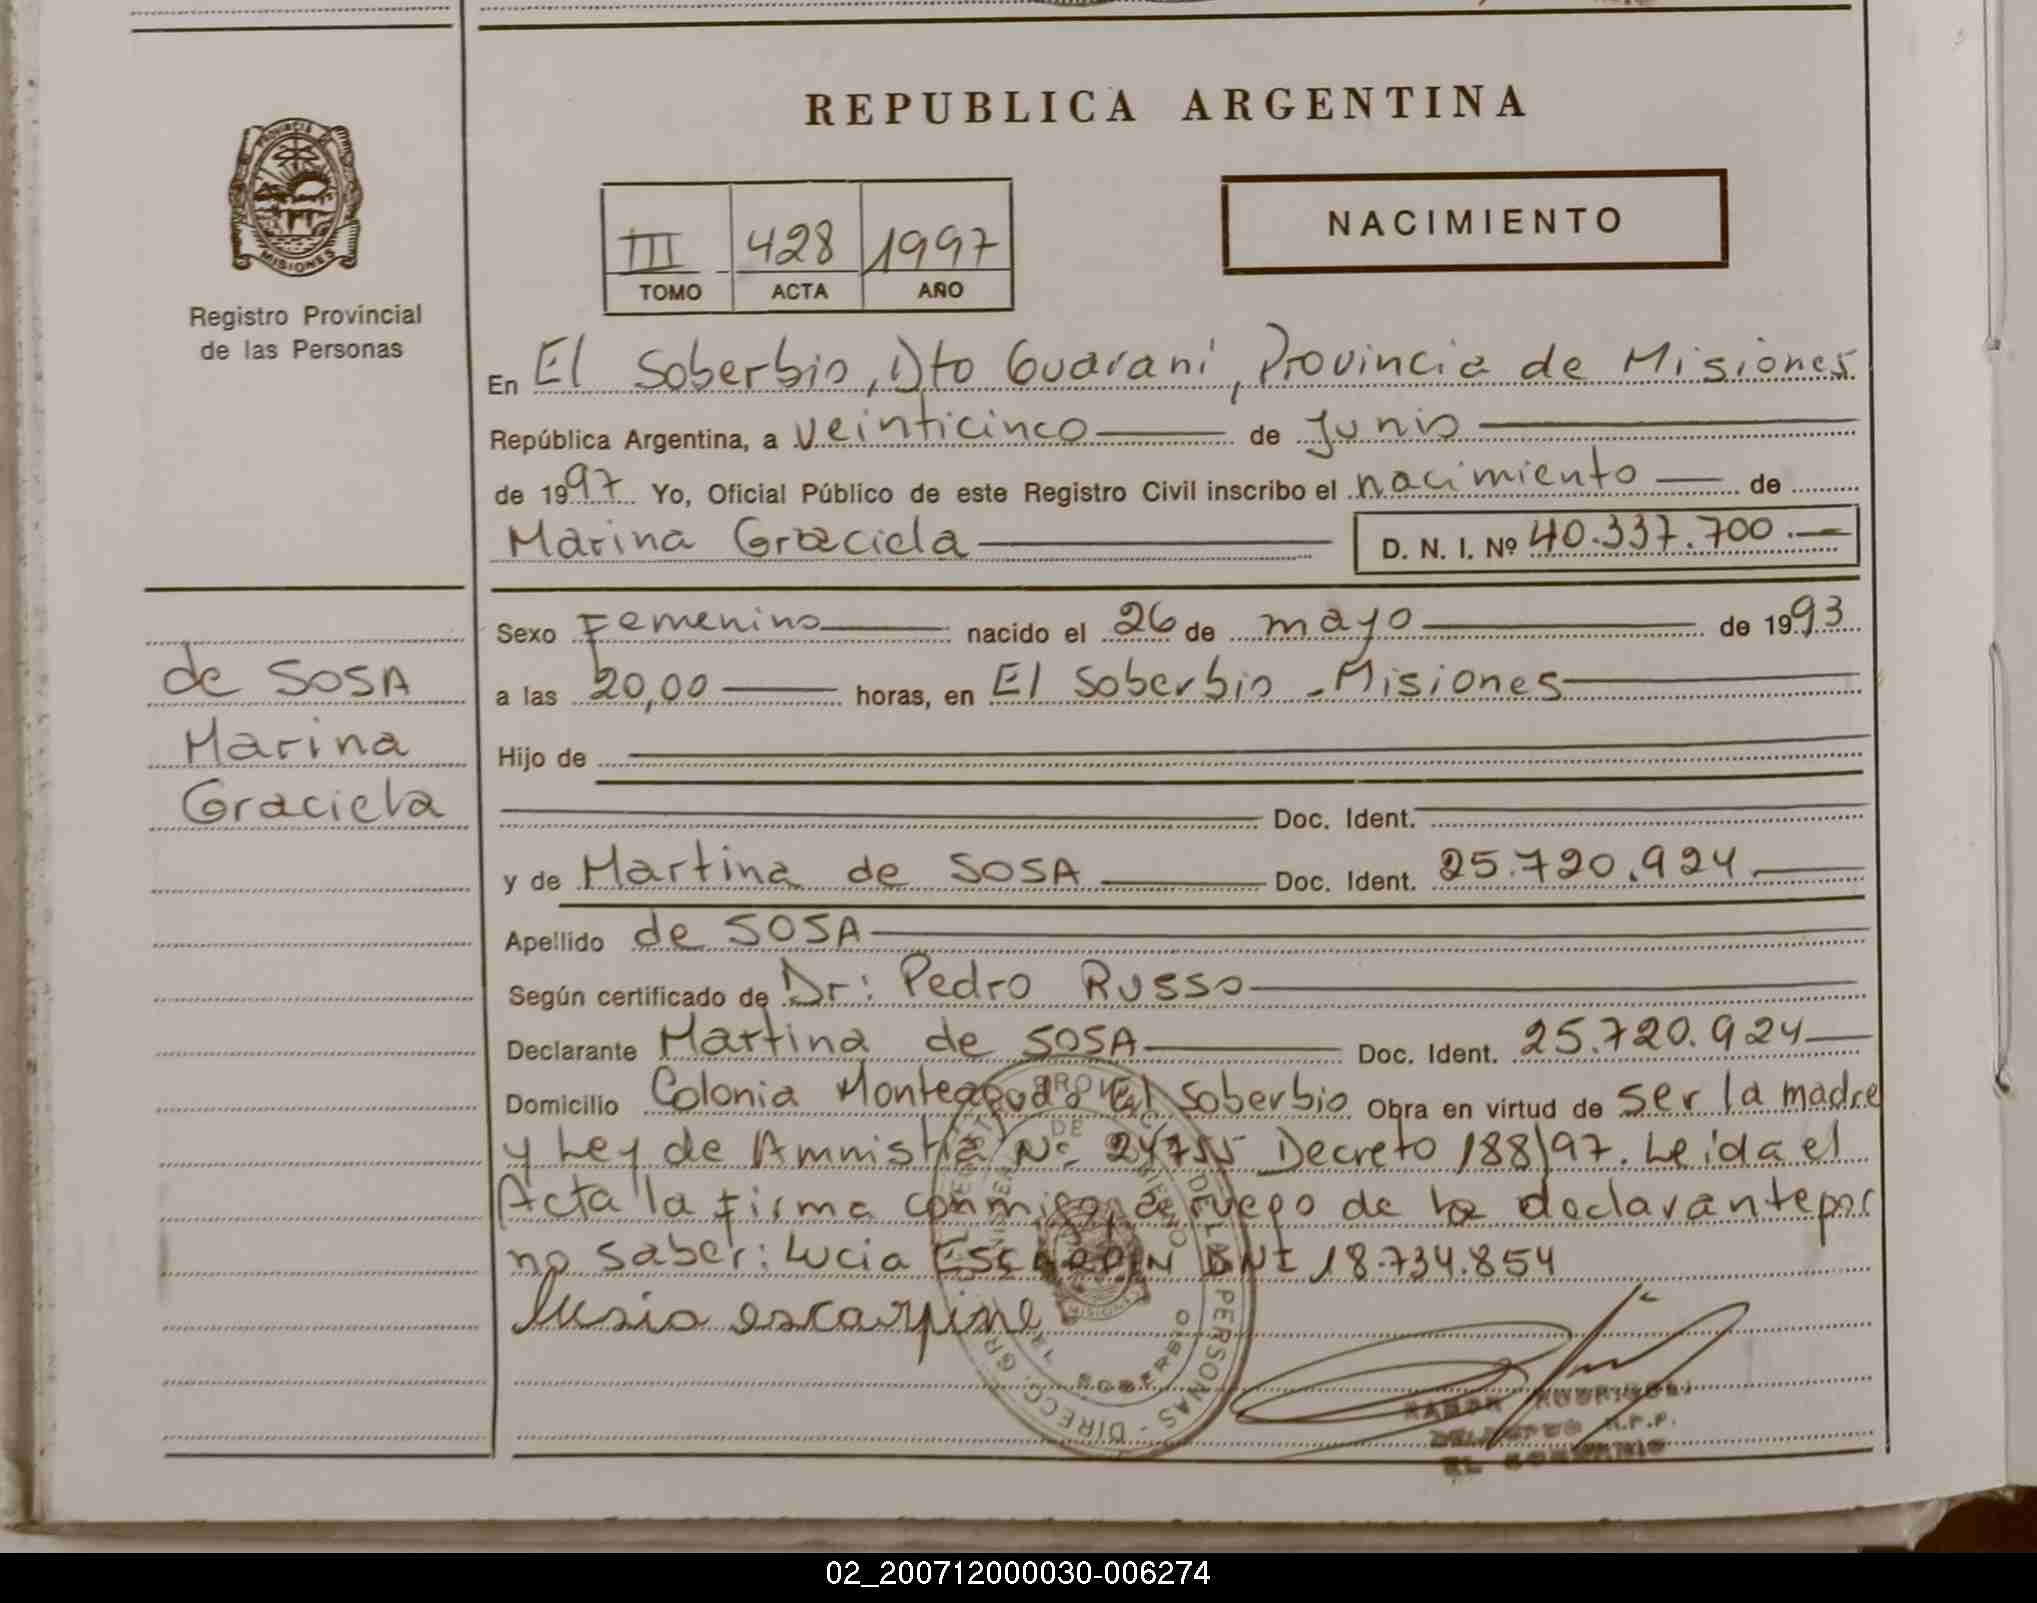 REPUBLICA ARGENTINA
PROVINCIA DE
MISIONES
Registro Provincial
de las Personas
NACIMIENTO
III 428 1997
TOMO ACTA AÑO
En El Soberbio, Dto Guarani, Provincia de Misiones
República Argentina, a veinticinco de Junio
de 1997 Yo, Oficial Público de este Registro Civil inscribo el nacimiento de
Marina Graciela D. N. I. Nº 40.337.700.
de SOSA
Marina
Graciela
Sexo Femenino nacido el 26 de mayo de 1993
a las 20,00 horas, en El Soberbio - Misiones
Hijo de
Doc. Ident.
y de Martina de SOSA Doc. Ident. 25.720.924
Apellido de SOSA
Según certificado de Dr: Pedro Russo
Declarante Martina de SOSA Doc. Ident. 25.720.924
Domicilio Colonia Monteagudo El Soberbio Obra en virtud de ser la madre
y Ley de Amnistia Nº 24755 Decreto 188/97. Leida el
Acta la firma conmigo, a ruego de la declarante por
no saber: Lucia DNI 18.734.854
escarpine
DE LAS PERSONAS - DIRECC. GR
SOBERBIO
EL SOBERBIO
02_200712000030-006274